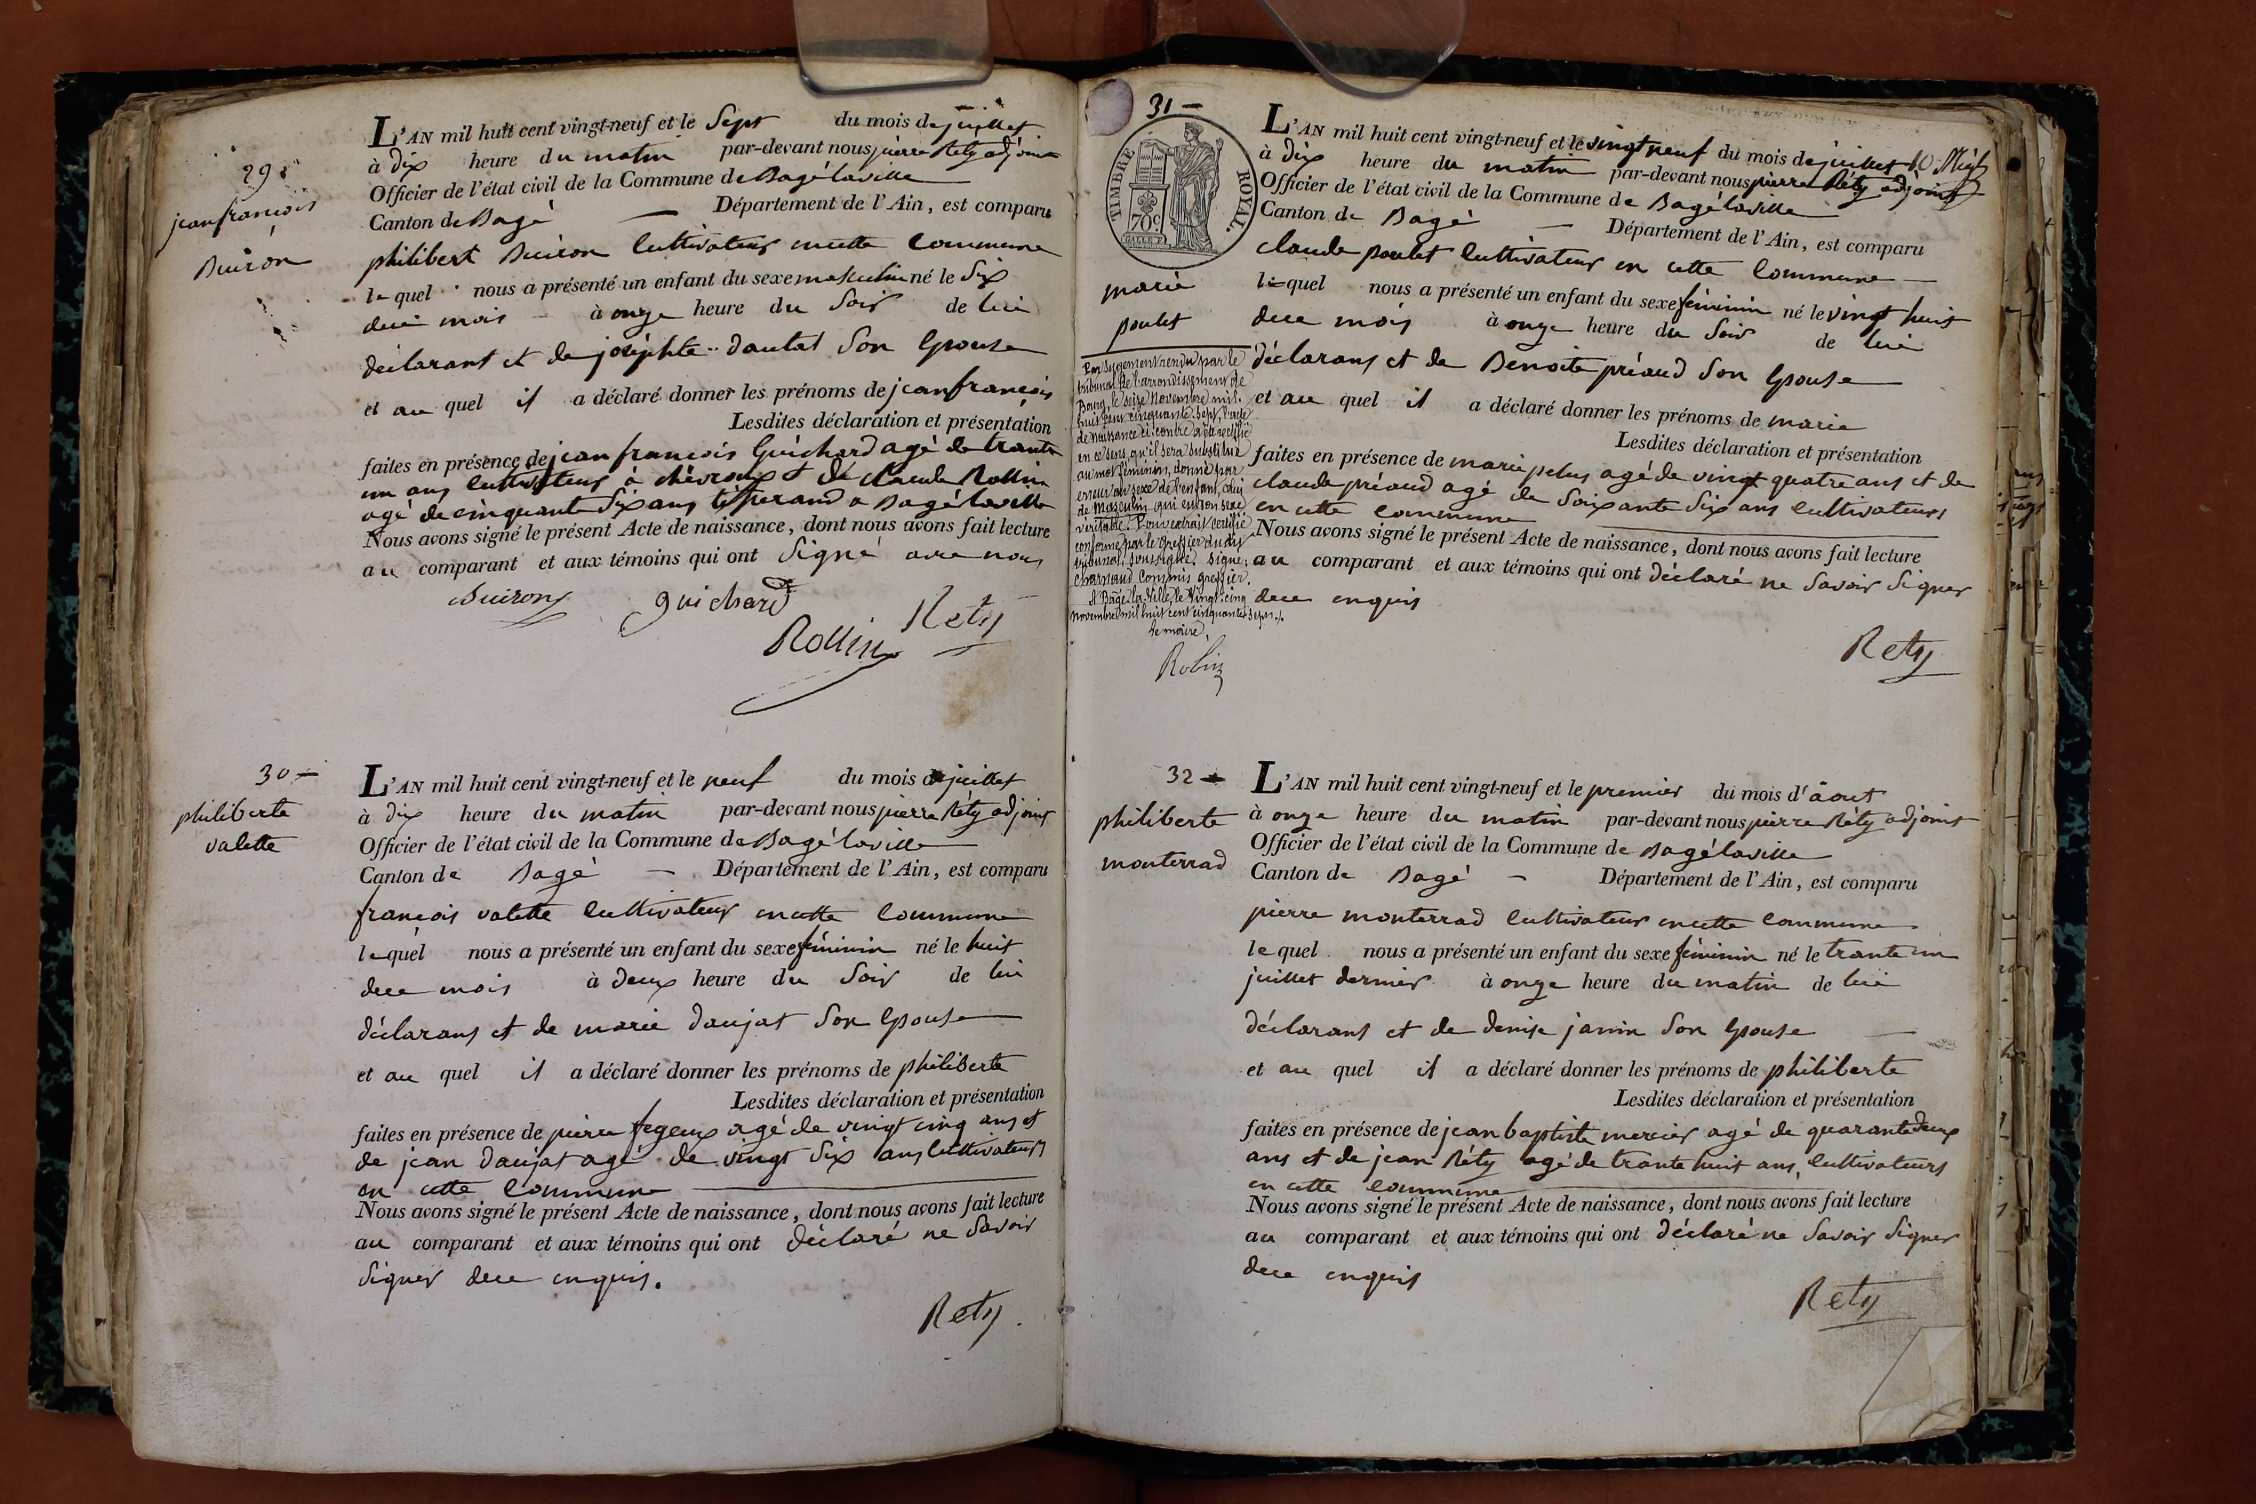 29
jean françois
Buiron
L'AN mil huit cent vingt-neuf et le Sept du mois de juillet
à dix heure du matin par-devant nous pierre Réty adjoint
Officier de l'état civil de la Commune de Bagélaville
Canton de Bagé — Département de l'Ain, est comparu
philibert Buiron Cultivateur en cette Commune
lequel nous a présenté un enfant du sexe masculin né le Six
du mois à onze heure du Soir de lui
déclarant et de joséphte dautal Son Epouse
et au quel il a déclaré donner les prénoms de jean françois
Lesdites déclaration et présentation
faites en présence de jean françois Guichard agé de trante
un ans cultivateur à chévroux et de claude Rollin
agé de cinquante Six ans tisserand a Bagélaville
Nous avons signé le présent Acte de naissance, dont nous avons fait lecture
au comparant et aux témoins qui ont Signé avec nous
Buiron guichard Rety
Rollin
30 —
philiberte
valette
L'AN mil huit cent vingt-neuf et le neuf du mois de juillet
à dix heure du matin par-devant nous pierre Réty adjoint
Officier de l'état civil de la Commune de Bagélaville
Canton de Bagé — Département de l'Ain, est comparu
françois valette Cultivateur en cette Commune
lequel nous a présenté un enfant du sexe féminin né le huit
du mois à deux heure du Soir de lui
déclarans et de marie daujat Son Epouse
et au quel il a déclaré donner les prénoms de philiberte
Lesdites déclaration et présentation
faites en présence de pierre fegeux agé de vingt cinq ans et
de jean daujat agé de vingt Six ans Cultivateurs
en cette Commune
Nous avons signé le présent Acte de naissance, dont nous avons fait lecture
au comparant et aux témoins qui ont déclaré ne Savoir
Signer de ce enquis.
Rety
31 —
TIMBRE ROYAL.
70c
marie
poulet
L'AN mil huit cent vingt-neuf et le vingt neuf du mois de juillet
à dix heure du matin par-devant nous pierre Réty adjoint
Officier de l'état civil de la Commune de Bagélaville
Canton de Bagé — Département de l'Ain, est comparu
claude poulet Cultivateur en cette Commune
lequel nous a présenté un enfant du sexe féminin né le vingt huit
du mois à onze heure du Soir de lui
déclarans et de Benoite préaud Son Epouse
et au quel il a déclaré donner les prénoms de marie
Lesdites déclaration et présentation
faites en présence de marie pelus agé de vingt quatre ans et de
claude préaud agé de Soixante Six ans Cultivateurs
en cette Commune
Nous avons signé le présent Acte de naissance, dont nous avons fait lecture
au comparant et aux témoins qui ont déclaré ne Savoir Signer
de ce enquis
Rety
Par Jugement rendu par le
tribunal de l'arrondissement de
Bourg, le seize Novembre mil-
huit-cent cinquante-sept, l'acte
de naissance ci-contre a été rectifié
en ce sens, qu'il sera substitué
au mot féminin, donné par
erreur au sexe de l'enfant, celui
de masculin qui est son sexe
véritable. Pour extrait certifié
conforme par le Greffier du dit
tribunal, soussigné. signé:
charnaud Commis greffier.
A Bagé-la-Ville, le vingt-cinq
novembre mil huit cent cinquante sept.
Le maire,
Robin
32
philiberte
monterrad
L'AN mil huit cent vingt-neuf et le premier du mois d'août
à onze heure du matin par-devant nous pierre Réty adjoint
Officier de l'état civil de la Commune de Bagélaville
Canton de Bagé — Département de l'Ain, est comparu
pierre monterrad Cultivateur en cette Commune
lequel nous a présenté un enfant du sexe féminin né le trante un
juillet dernier à onze heure du matin de lui
déclarans et de denise janin Son Epouse
et au quel il a déclaré donner les prénoms de philiberte
Lesdites déclaration et présentation
faites en présence de jean baptiste mercier agé de quarante deux
ans et de jean Réty agé de trante huit ans, Cultivateurs
en cette Commune
Nous avons signé le présent Acte de naissance, dont nous avons fait lecture
au comparant et aux témoins qui ont déclaré ne Savoir Signer
de ce enquis
Rety